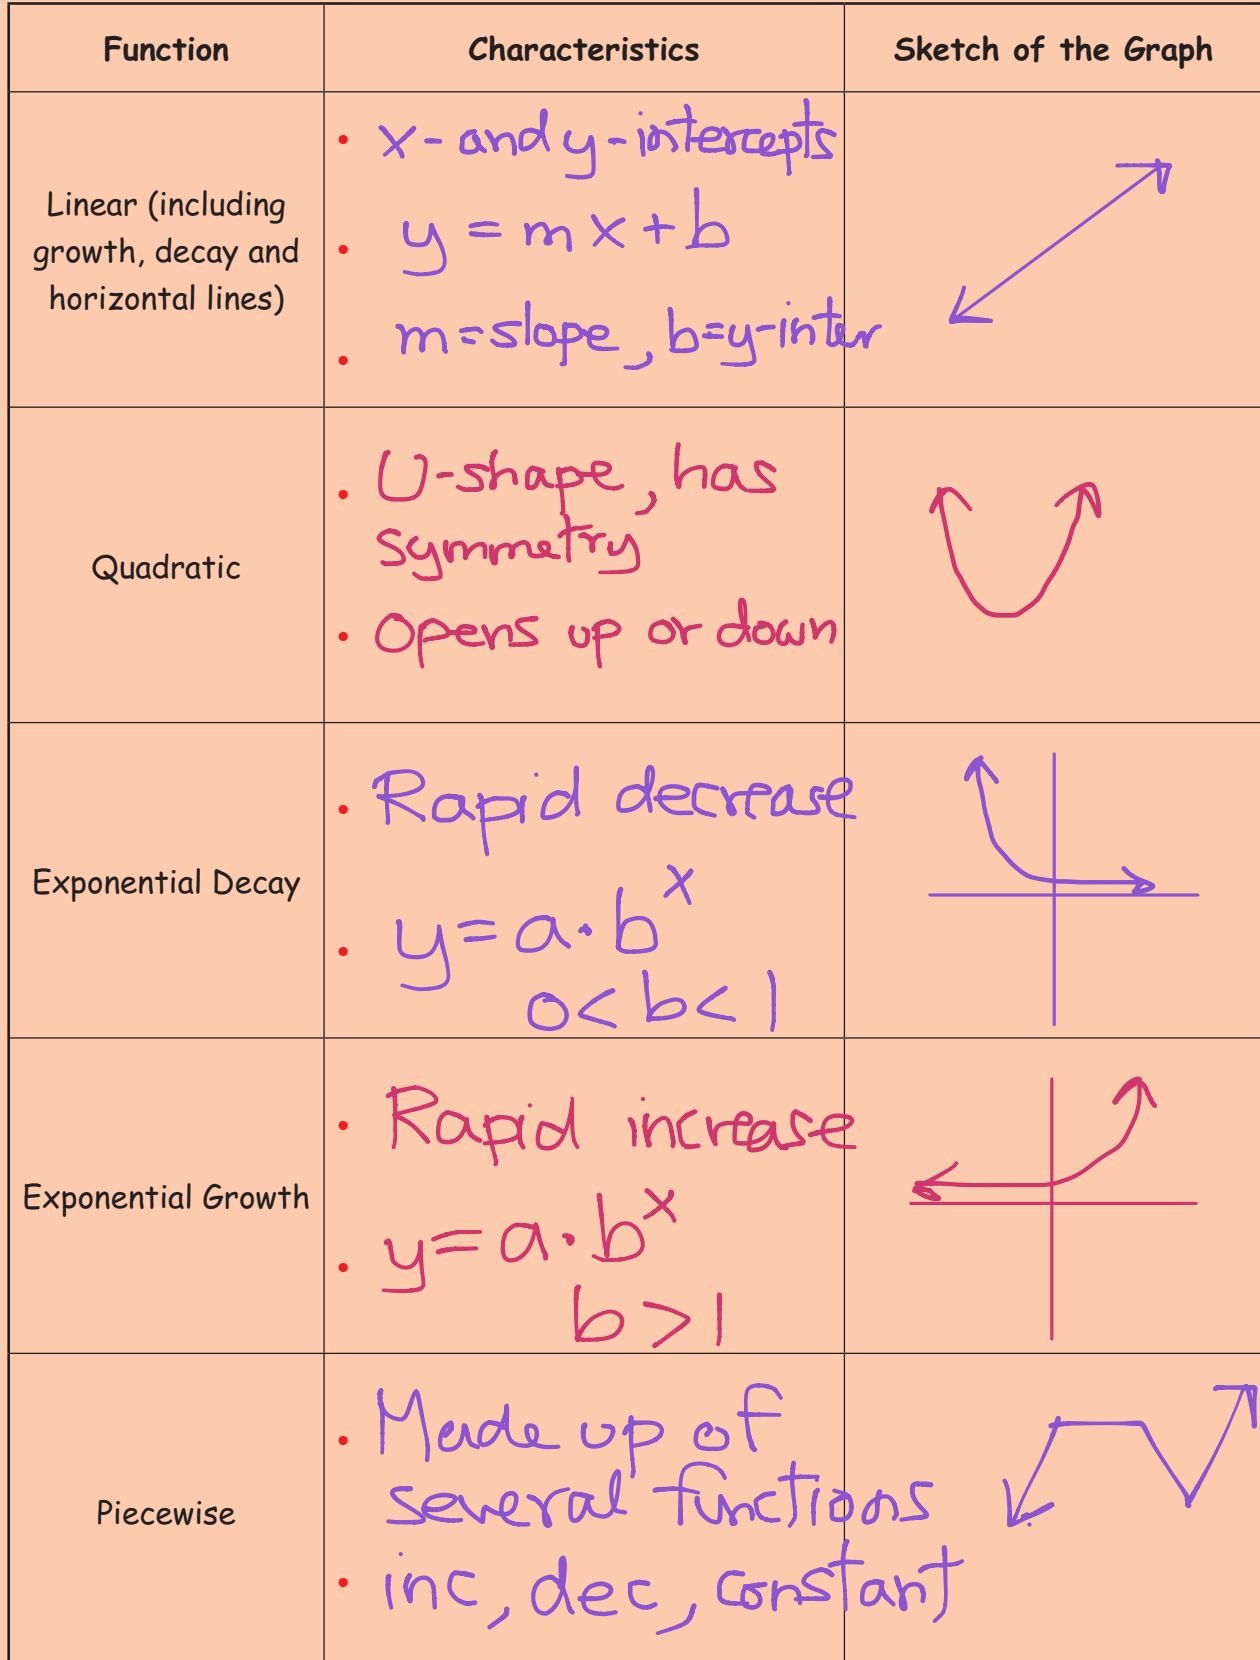 Function
Characteristics
Sketch of the Graph
Linear (including
growth, decay and
horizontal lines)
• x- and y-intercepts
• y = mx + b
• m=slope, b=y-inter
Quadratic
• U-shape, has
symmetry
• Opens up or down
Exponential Decay
• Rapid decrease
• y = a · b^x
0 < b < 1
Exponential Growth
• Rapid increase
• y = a · b^x
b > 1
Piecewise
• Made up of
several functions
• inc, dec, constant